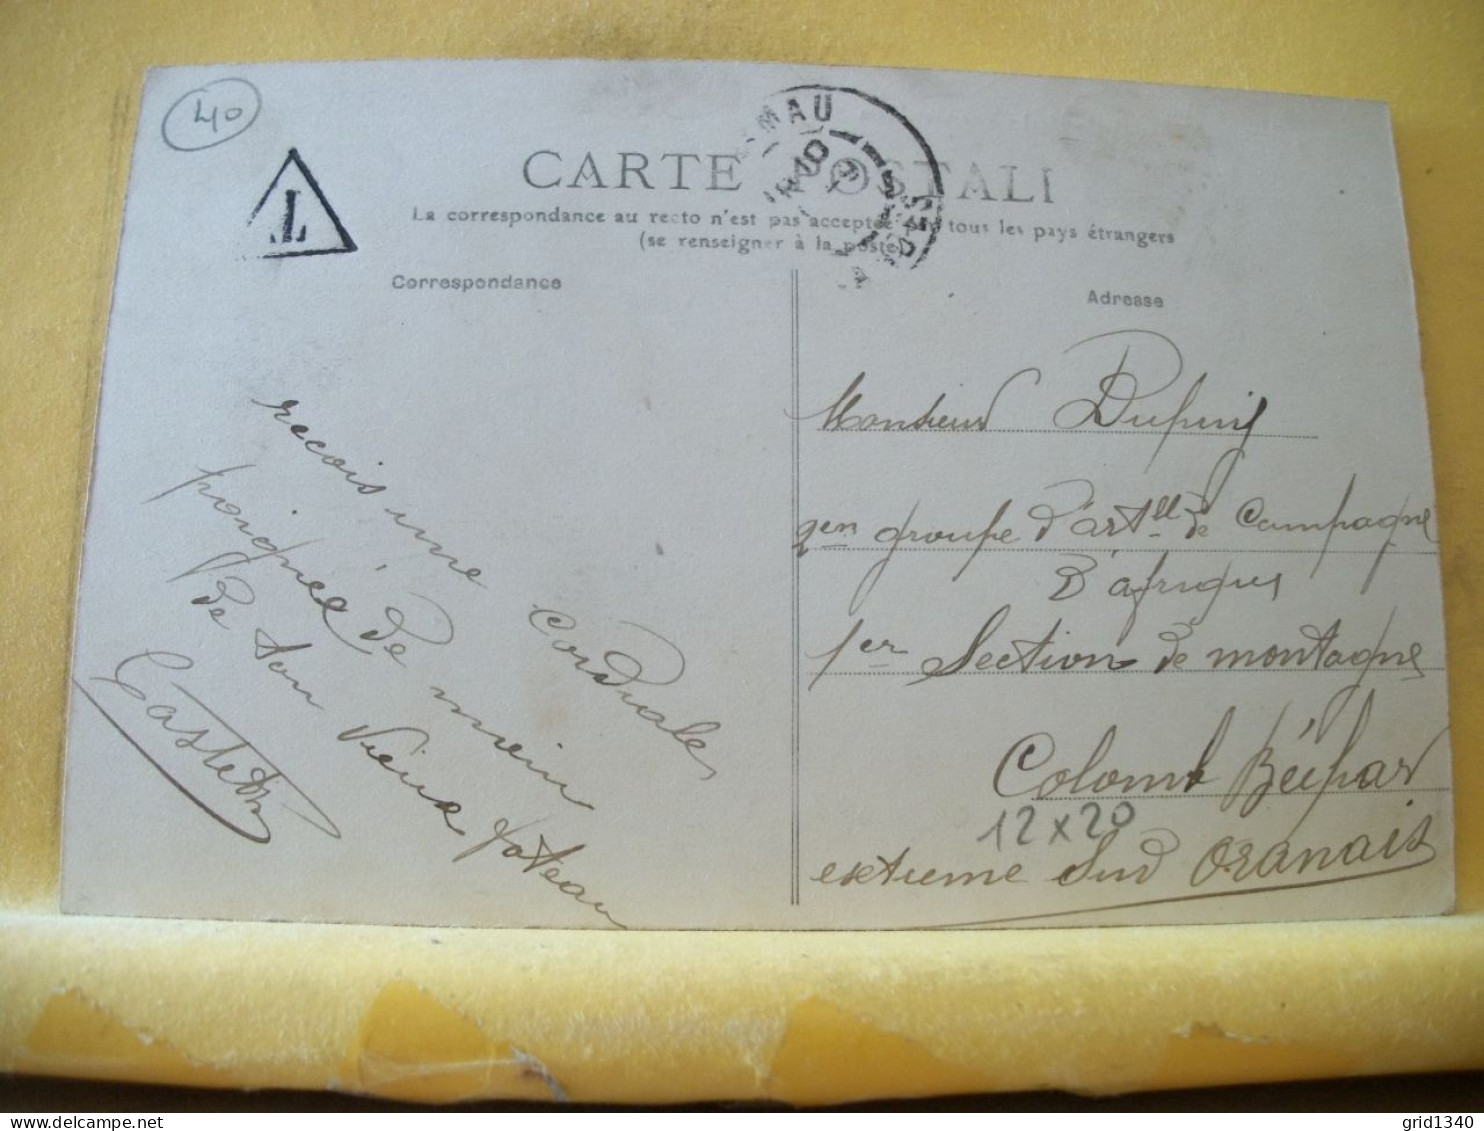 40
T
MAU
CARTE POSTALE
La correspondance au recto n'est pas acceptée par tous les pays étrangers
(se renseigner à la poste)
Correspondance
Adresse
recois une cordiale
poignée de main
de ton vieux poteau
Casteton
Monsieur Dupuy
groupe d'artll de Campagne
D'afrique
1er Section de montagne
Colomb Béchar
12x20
extreme Sud Oranais
grid1340